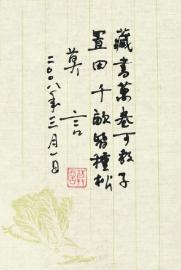 藏书万卷可教子
置田千畝皆種松
莫言
二〇〇八年三月一日